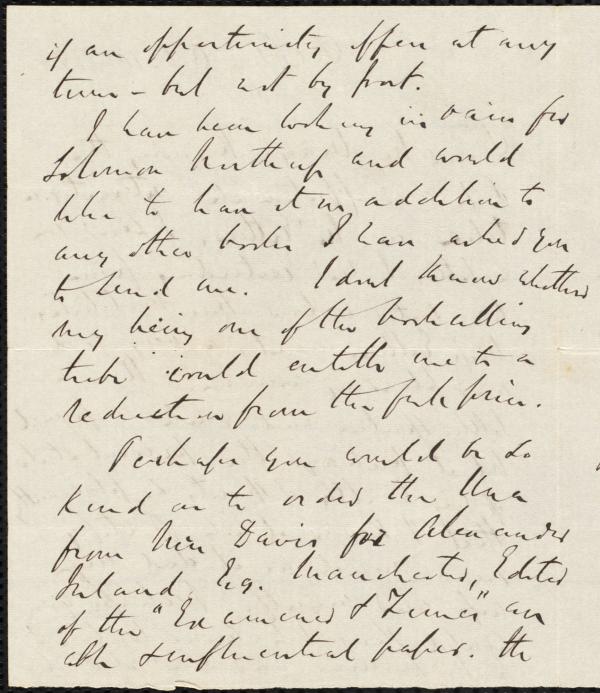 if an opportunity offers at any
time - but not by post.
I have been looking in vain for
Solomon Northup and would
like to have it in addition to
any other books I have asked you
to send me. I dont know whether
my being one of the bookselling
tribe would entitle me to a
reduction from the full price.
Perhaps you would be so
kind as to order the Una
from Mrs Davis for Alexander
Ireland, Esq. Manchester, Editor
of the "Examiner & Times" an
able & influential paper. He